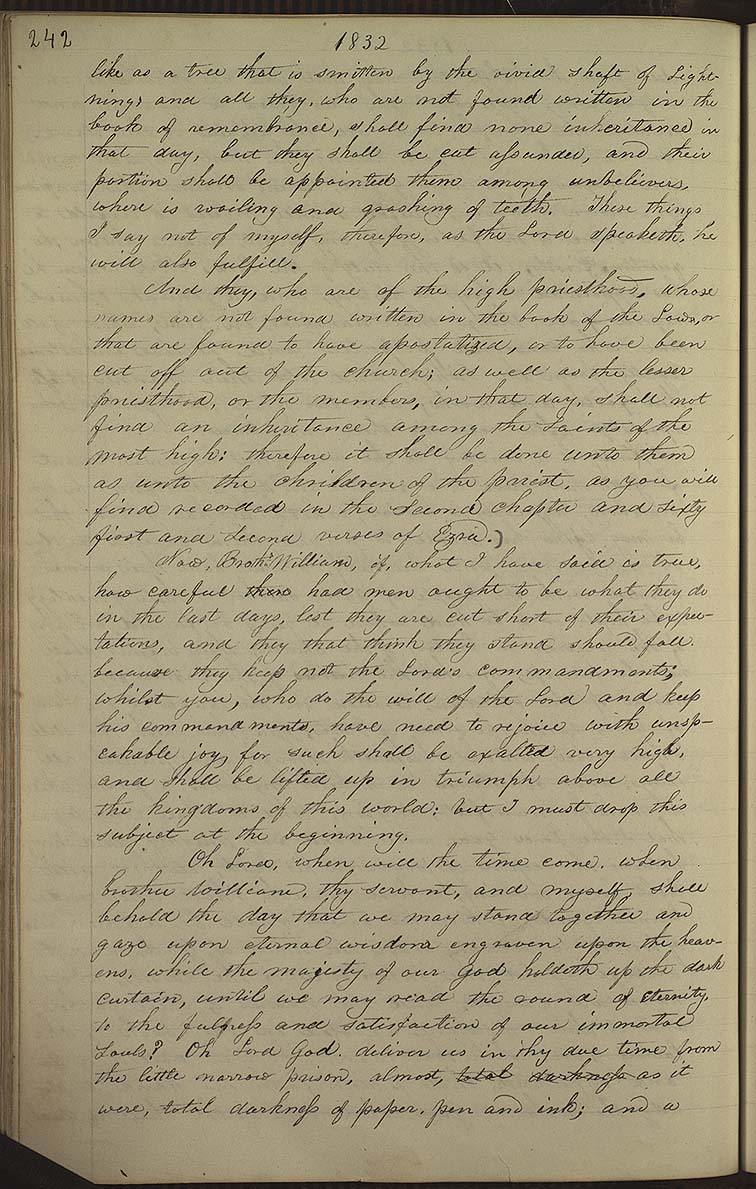 242
1832
like as a tree that is smitten by the vivid shaft of Light-
ning; and all they, who are not found written in the
book of remembrance, shall find none inheritance in
that day, but they shall be cut assunder, and their
portion shall be appointed them among unbelievers,
where is wailing and gnashing of teeth. These things
I say not of myself, therefore, as the Lord speaketh, he
will also fulfill.
And they, who are of the high priesthood, whose
names are not found written in the book of the Law, or
that are found to have apostatized, or to have been
cut off out of the church; as well as the lesser
priesthood, or the members, in that day, shall not
find an inheritance among the Saints of the
most high: therefore it shall be done unto them
as unto the children of the priest, as you will
find recorded in the Second chapter and sixty
first and Second verses of Ezra.)
Now, Broth. William, if, what I have said is true,
how careful then had men ought to be what they do
in the last days, lest they are cut short of their expec-
tations, and they that think they stand should fall.
because they keep not the Lord's commandments;
whilst you, who do the will of the Lord and keep
his commandments, have need to rejoice with unsp-
eakable joy, for such shall be exalted very high,
and shall be lifted up in triumph above all
the kingdoms of this world: but I must drop this
subject at the beginning.
Oh Lord, when will the time come. when
brother William, thy servant, and myself, shall
behold the day that we may stand together and
gaze upon eternal wisdom engraven upon the heav-
ens, while the majesty of our God holdeth up the dark
curtain, until we may read the round of Eternity,
to the fullness and satisfaction of our immortal
Souls? Oh Lord God. deliver us in thy due time from
the little narrow prison, almost, total darkness as it
were, total darkness of paper, pen and ink; and a